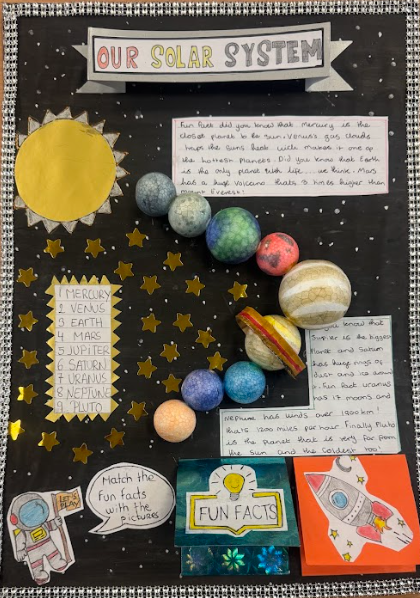 OUR SOLAR SYSTEM
Fun Fact did you know that Mercury is the
closest planet to the sun. Venus's gas clouds
traps the suns heat wich makes it one of
the hottest planets. Did you know that Earth
is the only planet with life... we think. Mars
has a huge volcano thats 3 times bigger than
Mount Everest!
1 MERCURY
2 VENUS
3 EARTH
4 MARS
5 JUPITER
6 SATURN
7 URANUS
8 NEPTUNE
9 PLUTO
know that
Jupiter is the biggest
Planet and Saturn
has huge rings of
dust and ice
Fun Fact uranus
has 17 moons and
Neptune has winds over 1900 km
thats 1200 miles per hour Finally Pluto
is the planet that is very far from
the sun and the coldest too!
LET'S PLAY
Match the
fun facts
with the
pictures
FUN FACTS